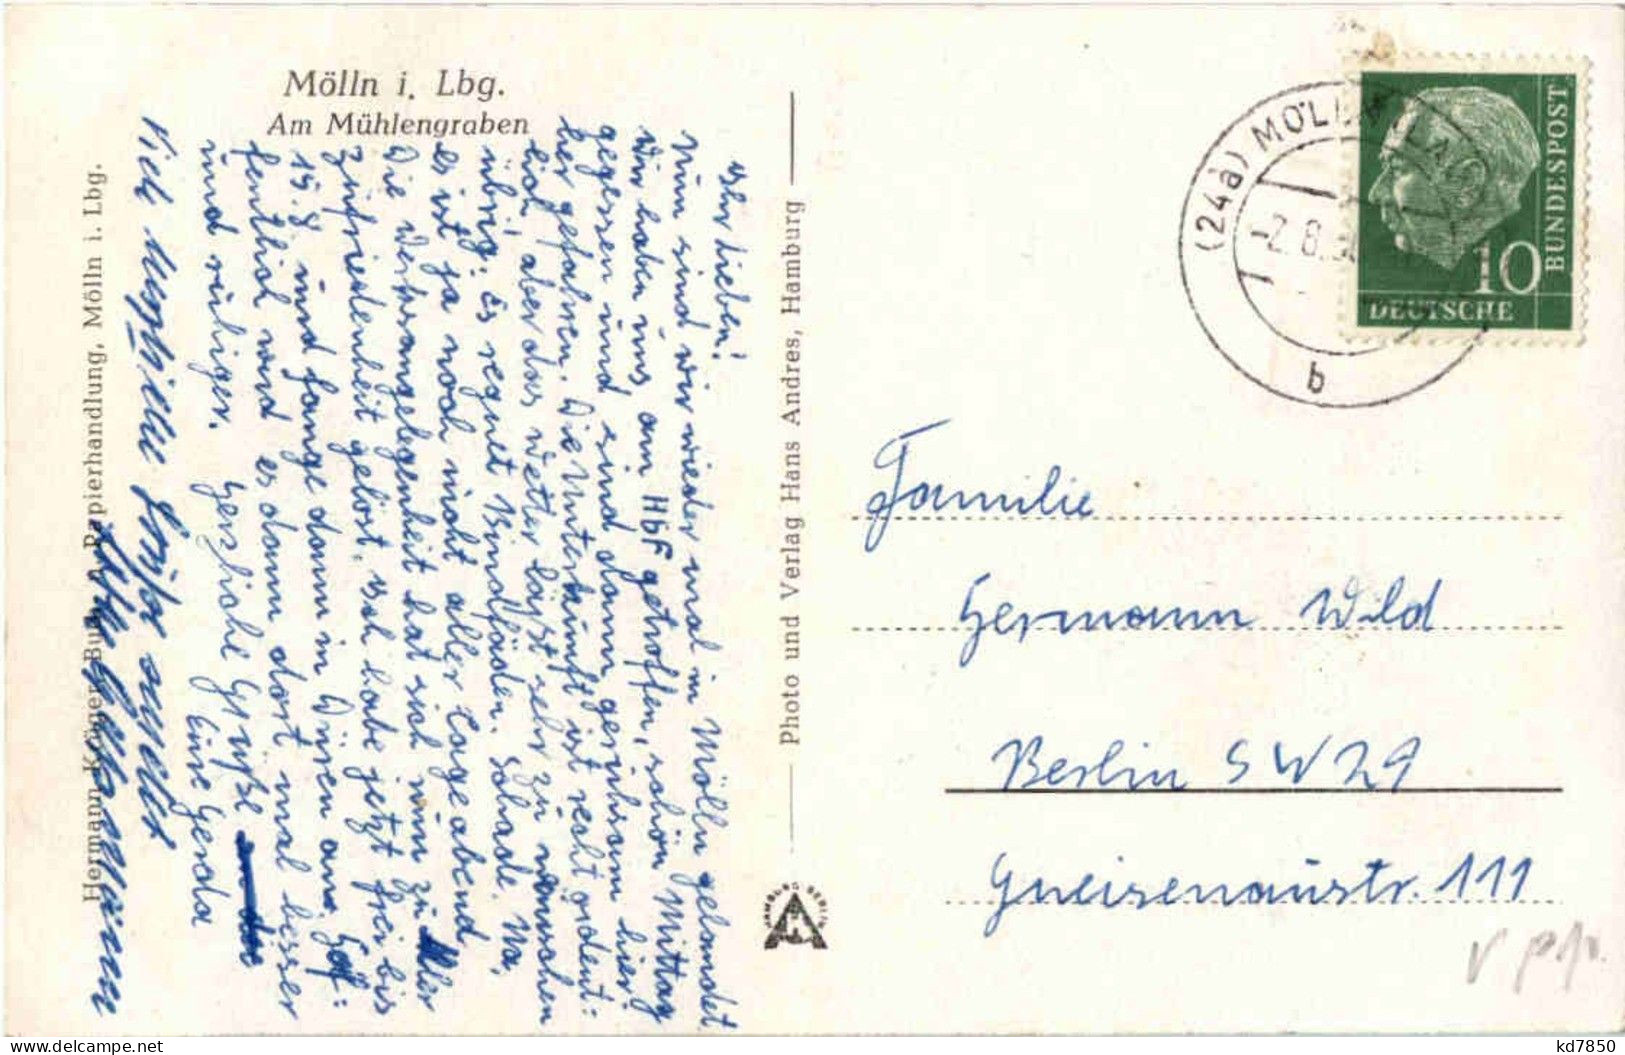 Mölln i. Lbg.
Am Mühlengraben
Ihr Lieben!
Nun sind wir wieder mal in Mölln gelandet.
Wir haben uns am Hbf getroffen, schön Mittag
gegessen und sind dann gemeinsam hier:
her gefahren. Die Unterkunft ist recht ordent:
lich, aber das Wetter läßt sehr zu wünschen
übrig. Es regnet Bindfäden. Schade. Na,
es ist ja noch nicht aller Tage abend
Die Wohnungsangelegenheit hat sich nun zu aller
zufriedenheit gelöst. Ich habe jetzt frei bis
15.8 und fange dann in Düren an. Hof:
fentlich wird es dann dort mal besser
und ruhiger. Herzliche Grüße
Eure Gerda
Viele Grüße
Hermann Krüger, Buch- u. Papierhandlung, Mölln i. Lbg.
Photo und Verlag Hans Andres, Hamburg
HAMBURG BERLIN
(24a) MÖLLN
-2.8.
b
10
BUNDESPOST
DEUTSCHE
Familie
Hermann Wild
Berlin SW 29
Gneisenaustr. 111
kd7850